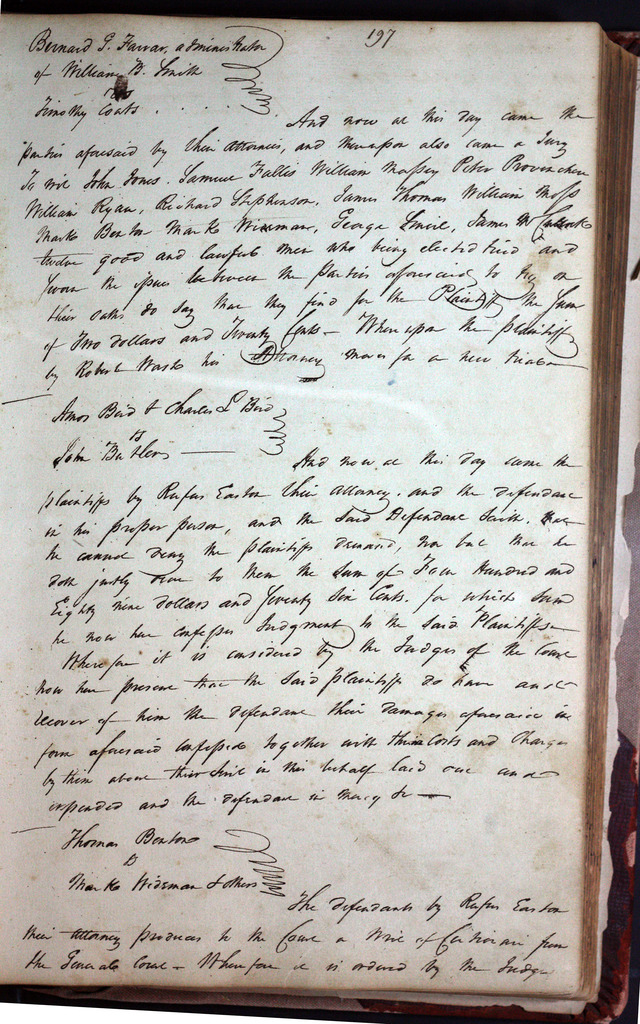 197
Bernard G. Farrar, administrator
of William B. Smith
vs
Timothy Coats . . . . .
And now at this day came the
parties aforesaid by their attornies, and thereupon also came a Jury
To wit John Jones. Samuel Fallis William Massey Peter Provenchere
William Ryan, Richard Stephenson, James Thomas William Moss
Mark Benton Mark Wideman, George James McCullock
twelve good and lawful men who being elected tried and
sworn the issue between the parties aforesaid to try on
their oaths do say that they find for the Plaintiff the sum
of Two dollars and Twenty Cents – Whereupon the plaintiff
by Robert Wash his Attorney moves for a new trial
Amos Bird & Charles L Bird
vs
John Butler
And now at this day came the
plaintiffs by Rufus Easton their attorney. and the defendant
in his proper person, and the said Defendant saith. that
he cannot deny the plaintiffs demand, nor but that he
doth justly owe to them the sum of Four Hundred and
Eighty nine dollars and Seventy Six Cents. for which sum
he now here confesses Judgment to the said Plaintiffs
Wherefore it is considered by the Judges of the Court
now here present that the said plaintiffs do have and
recover of him the defendant their damages aforesaid in
form aforesaid confessed together with their Costs and Charges
by them about their Suit in this behalf laid out and
expended and the defendant in mercy &c —
Thomas Benton
vs
Mark Wideman & others
The defendants by Rufus Easton
their attorney produces to the Court a Writ of Certiorari from
the General Court – Wherefore it is ordered by the Judges